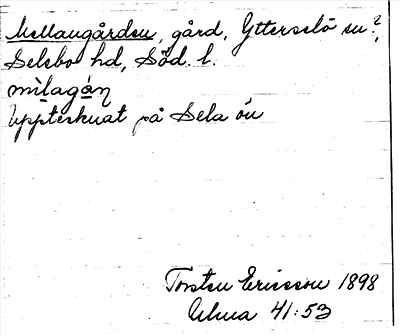 Mellangården, gård, Ytterselö sn?,
Selebo hd, Söd. l.
mìlagán
Upptecknat på Sela ön
Torsten Ericsson 1898
Ulma 41:53